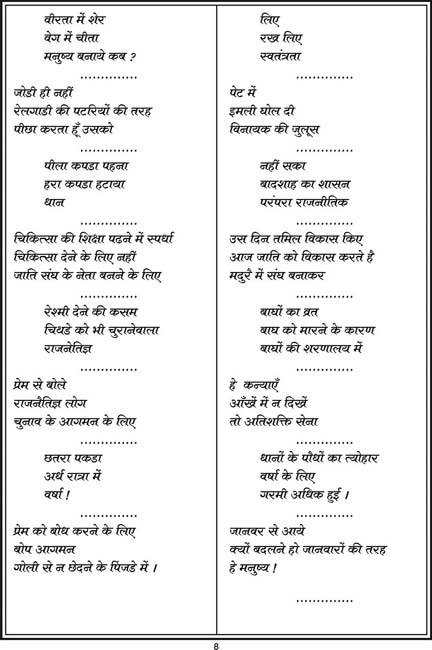 वीरता में शेर
वेग में चीता
मनुष्य बनाये कब ?
..............
जोडी ही नहीं
रेलगाडी की पटरियों की तरह
पीछा करता हूँ उसको
..............
पीला कपडा पहना
हरा कपडा हटाया
धान
..............
चिकित्सा की शिक्षा पढने में स्पर्धा
चिकित्सा देने के लिए नहीं
जाति संघ के नेता बनने के लिए
..............
रेश्मी देने की कसम
चिथडे को भी चुरानेवाला
राजनेतिज्ञ
..............
प्रेम से बोले
राजनैतिज्ञ लोग
चुनाव के आगमन के लिए
..............
छतरा पकडा
अर्ध रात्रा में
वर्षा !
..............
प्रेम को बोध करने के लिए
बोप आगमन
गोली से न छेदने के पिंजडे में ।
लिए
रख लिए
स्वतंत्रता
..............
पेट में
इमली घोल दी
विनायक की जुलूस
..............
नहीं सका
बादशाह का शासन
परंपरा राजनीतिक
..............
उस दिन तमिल विकास किए
आज जाति को विकास करते है
मदुरै में संघ बनाकर
..............
बाघों का व्रत
बाघ को मारने के कारण
बाघों की शरणालय में
..............
हे कन्याएँ
आँखें में न दिखें
तो अतिशक्ति सेना
..............
धानों के पौधों का त्योहार
वर्षा के लिए
गरमी अधिक हुई ।
..............
जानवर से आये
क्यों बदलने हो जानवारों की तरह
हे मनुष्य !
..............
8